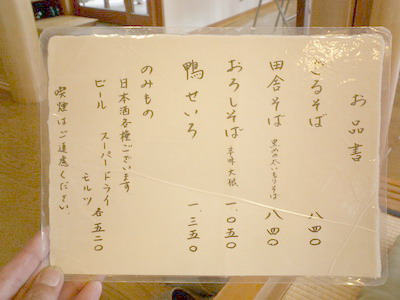 お品書
ざるそば 八四〇
田舎そば 黒めの太いもりそば 八四〇
おろしそば 辛味大根 一、〇五〇
鴨せいろ 一、三五〇
のみもの
日本酒各種ございます
ビール スーパードライ
モルツ 各五二〇
喫煙はご遠慮ください